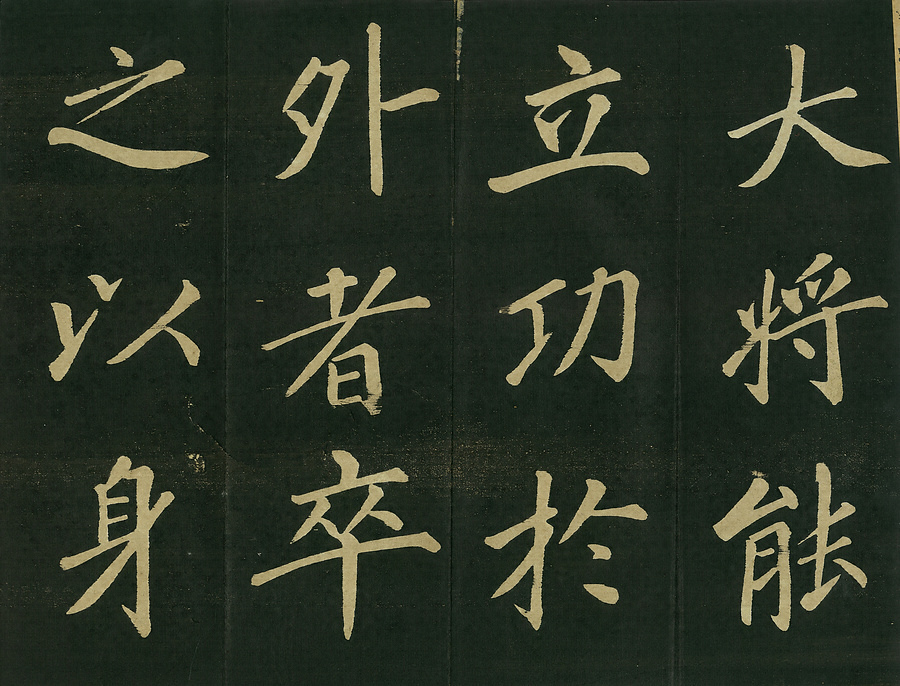 大将能
立功於
外者卒
之以身